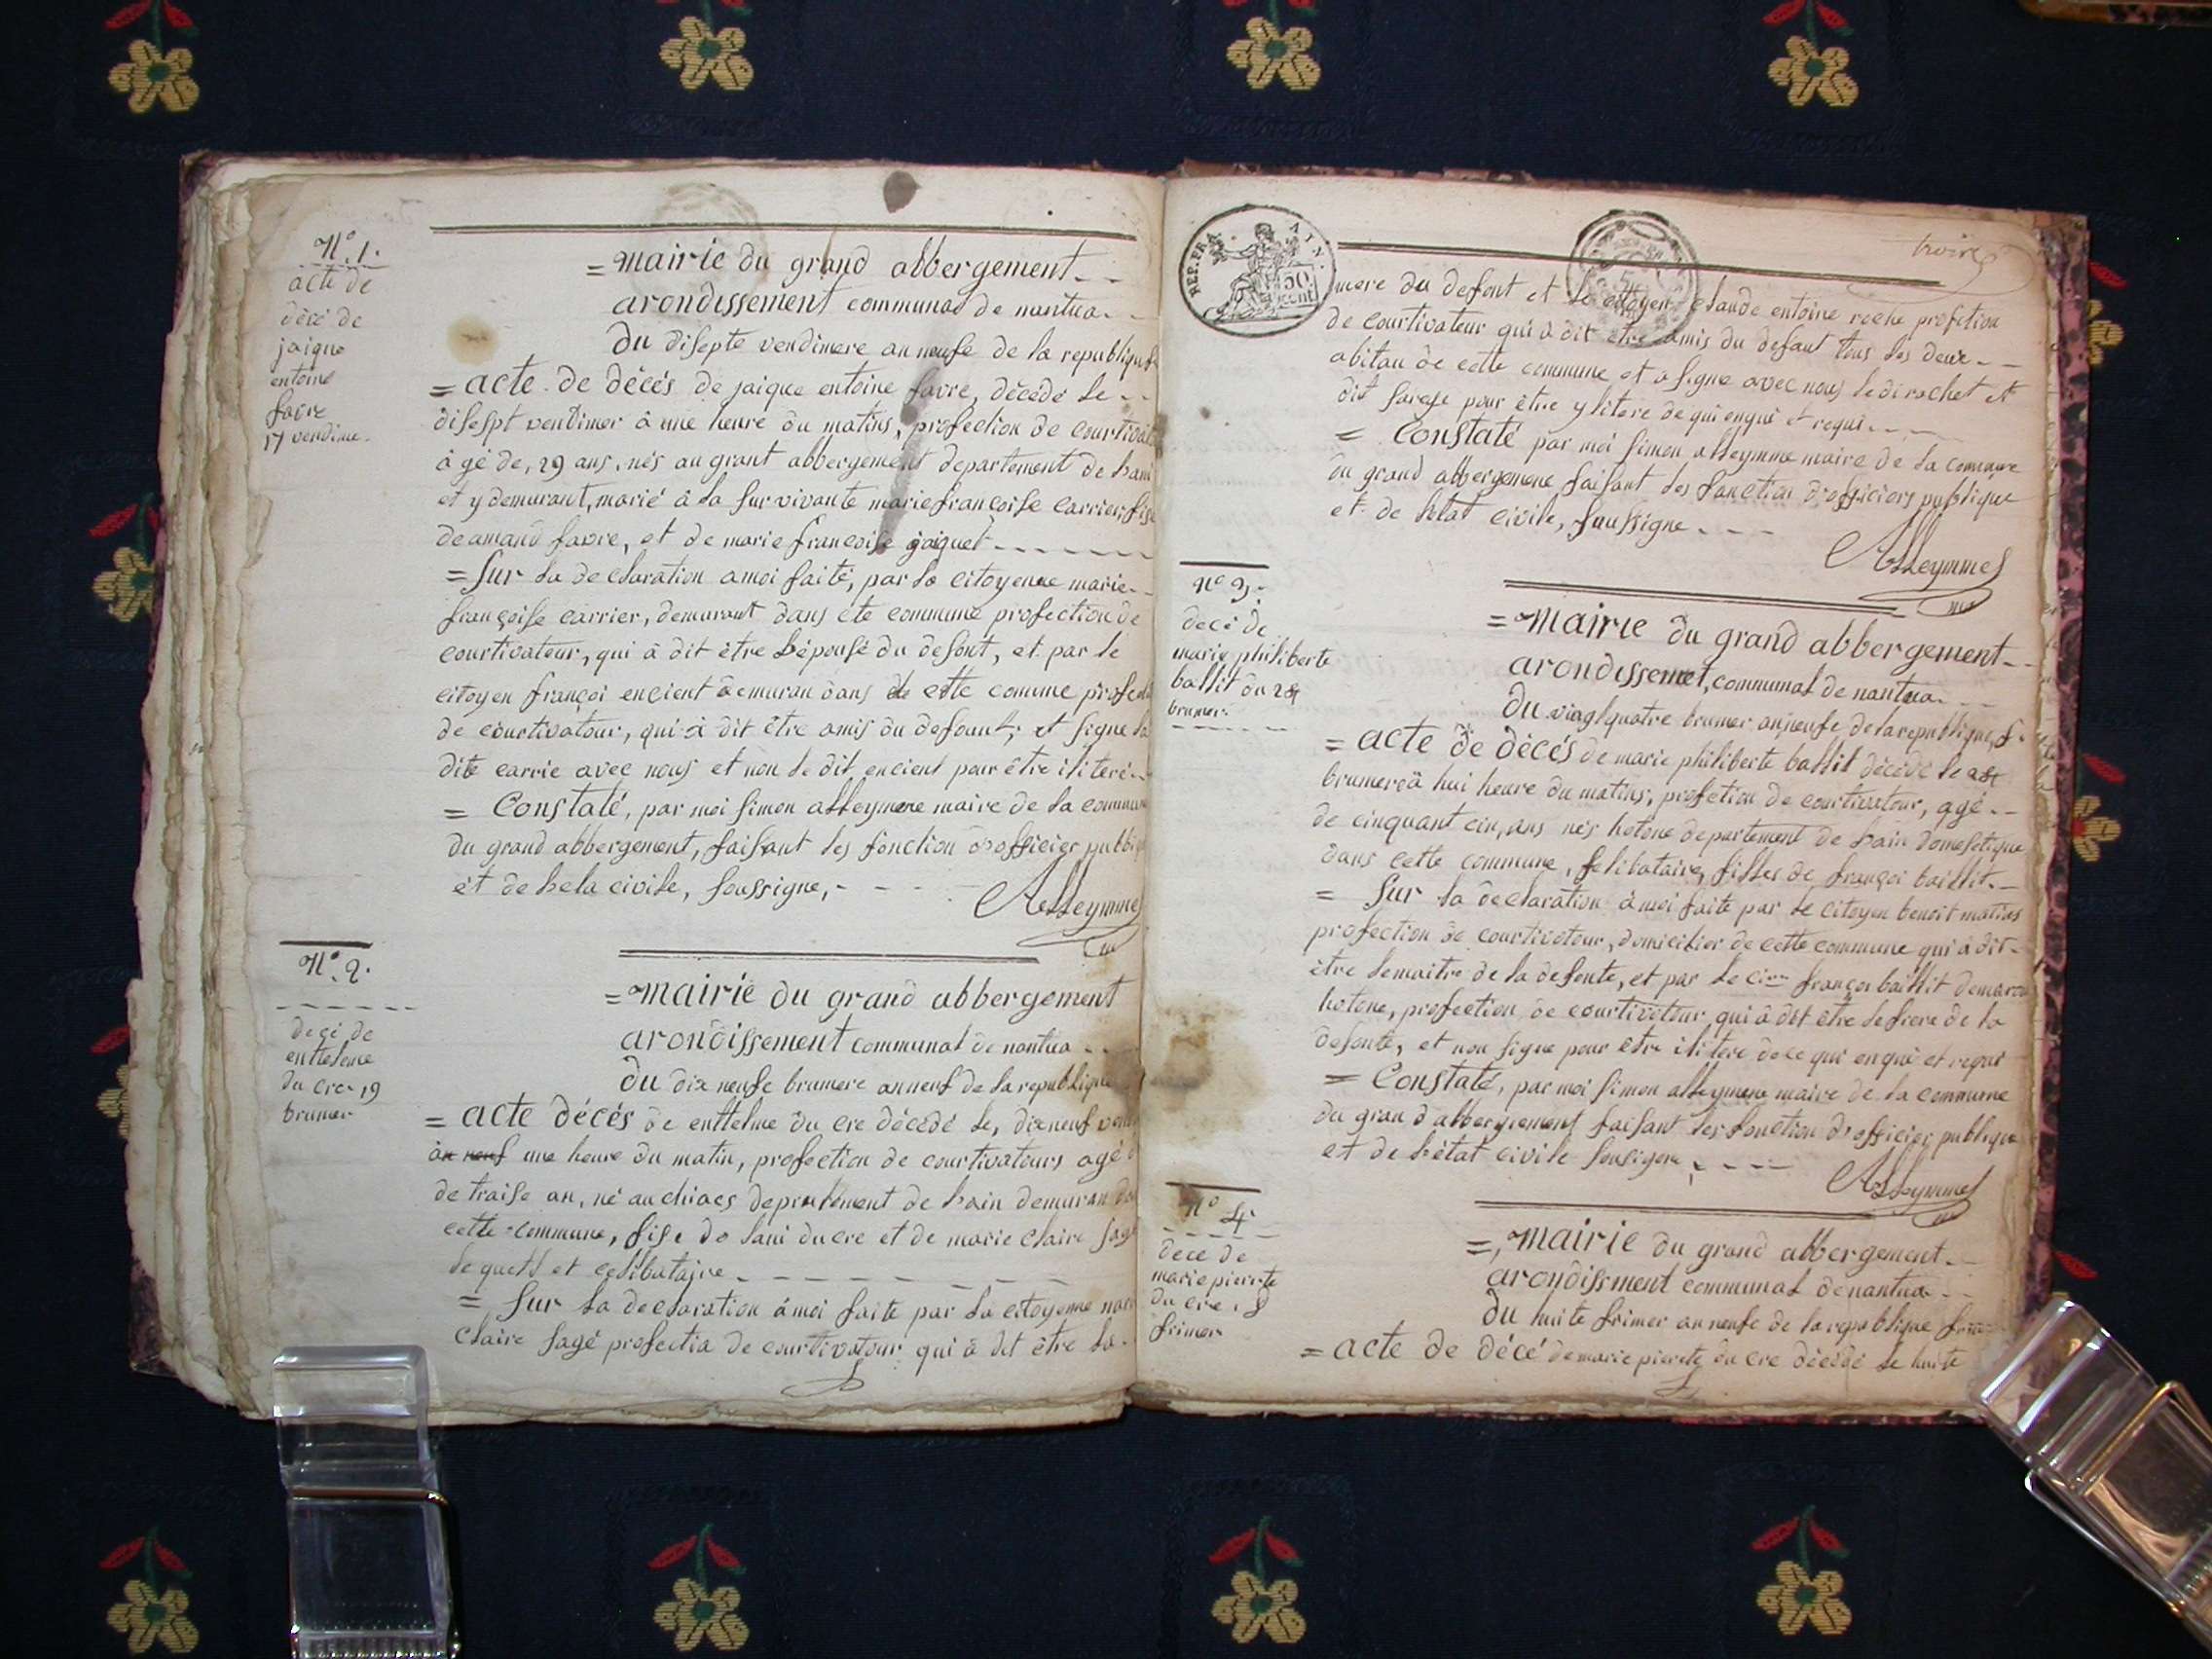 N.° 1.
acte de
décé de
jaique
entoine
favre
17 vendime.
= mairie du grand abbergement
arondissement communal de nantua
du disepte vendimere an neufe de la republique
= acte de décés de jaique entoine favre, décédé le
disespt vendimer à une heure du matins, profection de courtivat
âgé de, 29 ans, nés au grant abbergement departement de lain
et y demurant, marié à la survivante marie françoise carrier, fise
de amand favre, et de marie françoise jaiquet
= sur la declaration amoi faite, par la citoyenne marie
françoise carrier, demurant dans cte commune profection de
courtivatour, qui à dit être lépouse du defont, et par le
citoyen françoi encient demuran dans cette comune profecti
de courtivatour, qui à dit être amis du defount; et signe la
dite carrie avec nous et non le dit encient pour être iliteré
= Constaté, par moi simon alleymene maire de la commune
du grand abbergement, faisant les fonction d'officier publi
et de lela civile, soussigne,
Alleymme
N.° 2.
decé de
enttelme
du cre 19
brumer
= mairie du grand abbergement
arondissement communal de nantua
du dix neufe brumere an neuf de la republique
= acte décés de enttelme du cre décédé le, dixneuf
an neuf une heure du matin, profection de courtivatours agé
de traise an, né au chiaes depratement de lain demuran da
cette commune, fise de lani du cre et de marie claire sage
lequell et celibataire
= sur la declaration à moi faite par la citoyenne mari
claire sagé profectia de courtivatour qui à dit être la
troire
REP. FRA. AIN.
50 cent
mere du defont et le citoyen claude entoine roche profection
de courtivateur qui à dit être amis du defaut tous les deux
abitan de cette commune et à signe avec nous ledi rochet et
dit sarege pour être ylitere de qui enqui et requi
= Constaté par moi simon alleymme maire de la commune
du grand abbergemene faisant les fonction d'officiers publique
et de lelat civile, soussigne
Alleymmes
N° 3.
decé de
marie philiberte
ballit du 24
brumer.
= mairie du grand abbergement
arondissemet, communal de nantua
du viagt quatre brumer an neufe de la republique, f.
= acte de décés de marie philiberte ballit décédé le 24
brumere à hui heure du matins, profection de courtivatour, agé
de cinquant cin, ans nés hotone departement de lain domestique
dans cette commune, selibataire, filles de françoi baillit.
= sur la declaration à moi faite par le citoyen benoit matias
profection de courtivotour, domicilier de cette commune qui à dit
être lemaitre de la defonte, et par le cien françoi baillit demuran
hotone, profection de courtivotour qui à dit être le frere de la
defonte, et non signe pour être ilitere de ce qui enqui et requi
= Constaté, par moi simon alleymene maire de la commune
du grand abbergement faisant les fonction d'officier publique
et de létat civile sousigne,
Alleymmes
N° 4
dece de
marie pierete
du cre, 8
frimer
=, mairie du grand abbergement
arondissment communal de nantua
du huite frimer an neufe de la republique
= acte de décé de marie pierete du cre décédé le huite